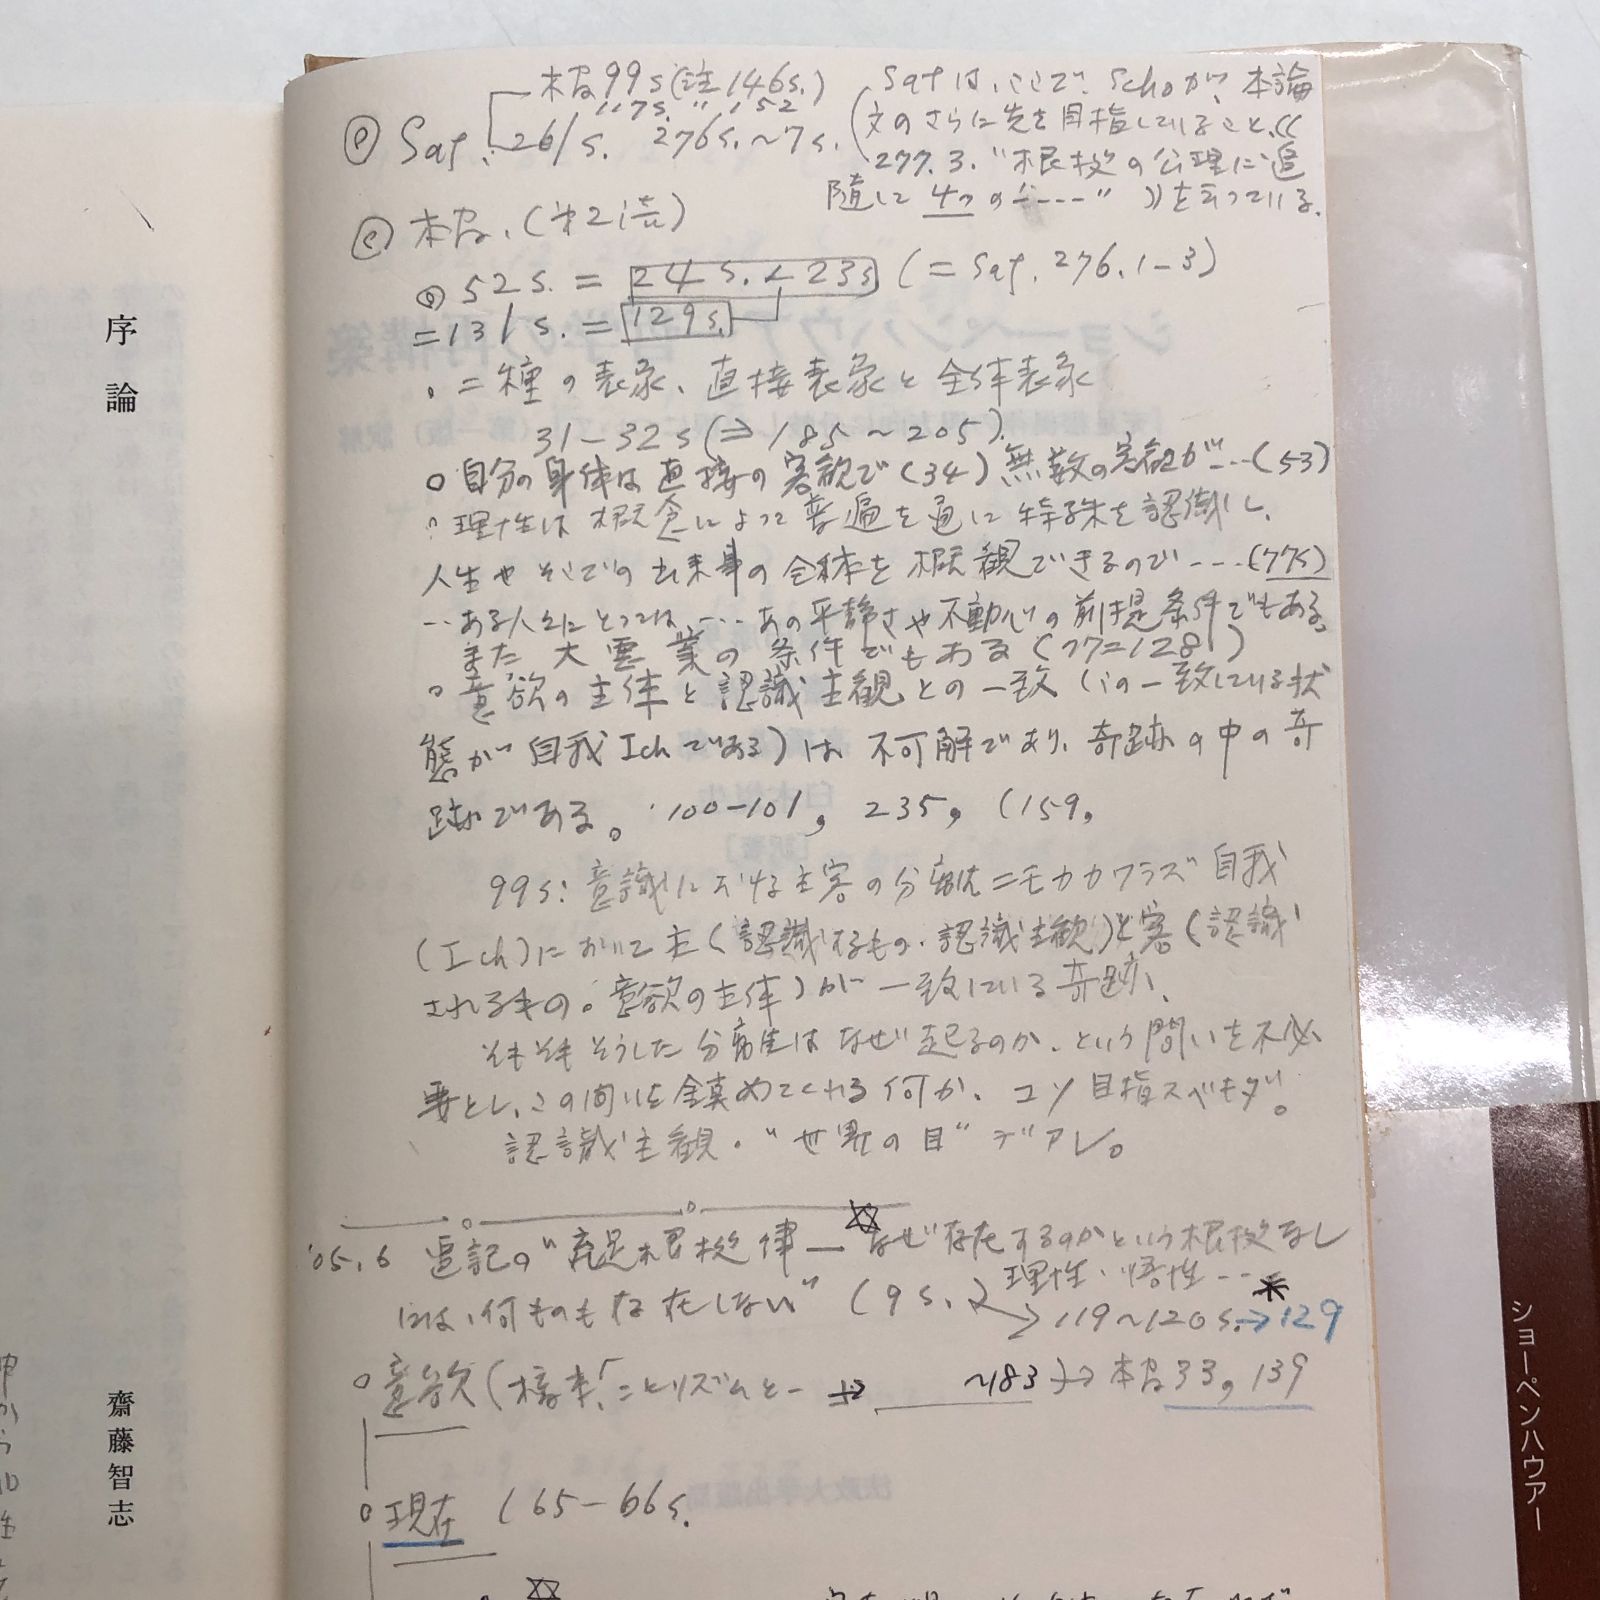 本書99s(註146s.)
117s. 〃 152
Sat. 261s. 276s.~7s.
(Satは、ここで、Schoが、本論
文のさらに先を目指していること、((
277.3. "根拠の公理に追
随して4つの----" ))を言っている.
本書、(第2読)
52s. = 24s. 23s (= Sat. 276.1-3)
=131s. = 129s.
。二種の表象、直接表象と全体表象
31-32s(⇒185~205).
○自分の身体は直接の客観で(34)無数の客観が…(53)
○理性は概念によって普遍を通じ特殊を認識し、
人生やそこでの出来事の全体を概観できるので---(77s)
--ある人々にとっては、---あの平静さや不動心の前提条件でもある。
また大悪業の条件でもある(77=128)
○意欲の主体と認識主観との一致(この一致している状
態が自我Ichである)は不可解であり、奇跡の中の奇
跡である。100-101, 235, (159,
99s: 意識における主客の分離ニモカカワラズ自我
(Ich)において主(認識するもの・認識主観)と客(認識
されるもの。意欲の主体)が一致している奇跡、
そもそもそうした分離はなぜ起るのか、という問いを不必
要とし、この問いを鎮めてくれる何か、コソ目指スベキダ。
認識主観・"世界の目"デアレ。
'05.6 追記の"充足根拠律—なぜ存在するのかという根拠なし
には、何ものも存在しない" (9s.)
理性・悟性--
→119~120s.→129
○意欲( ~183 → 本書33, 139
○現在 (65-66s.
序論
齋藤智志
ショーペンハウアー